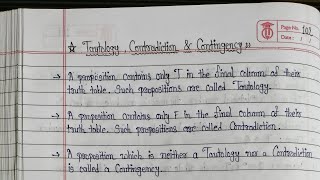 ☆ Tautology, Contradiction & Contingency »
Page No. 102
Date: / /
→ A proposition contains only T in the final column of their
truth table. Such propositions are called Tautology.
→ A proposition contains only F in the final column of their
truth table. Such propositions are called Contradiction.
→ A proposition which is neither a Tautology nor a Contradiction
is called a Contingency.